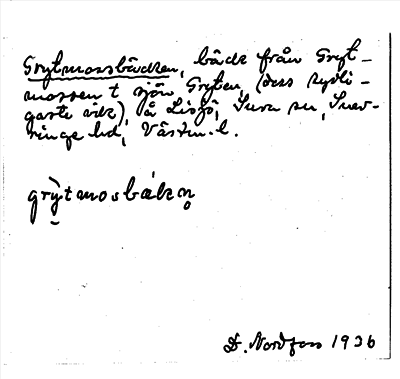 Grytmossbäcken, bäck från Gryt-
mossen t sjön Gryten, (dess sydli-
gaste vik), å Lisjö, Sura sn, Snev-
ringe hd, Västm. l.
grytmosbäkn
D. Nordfors 1936